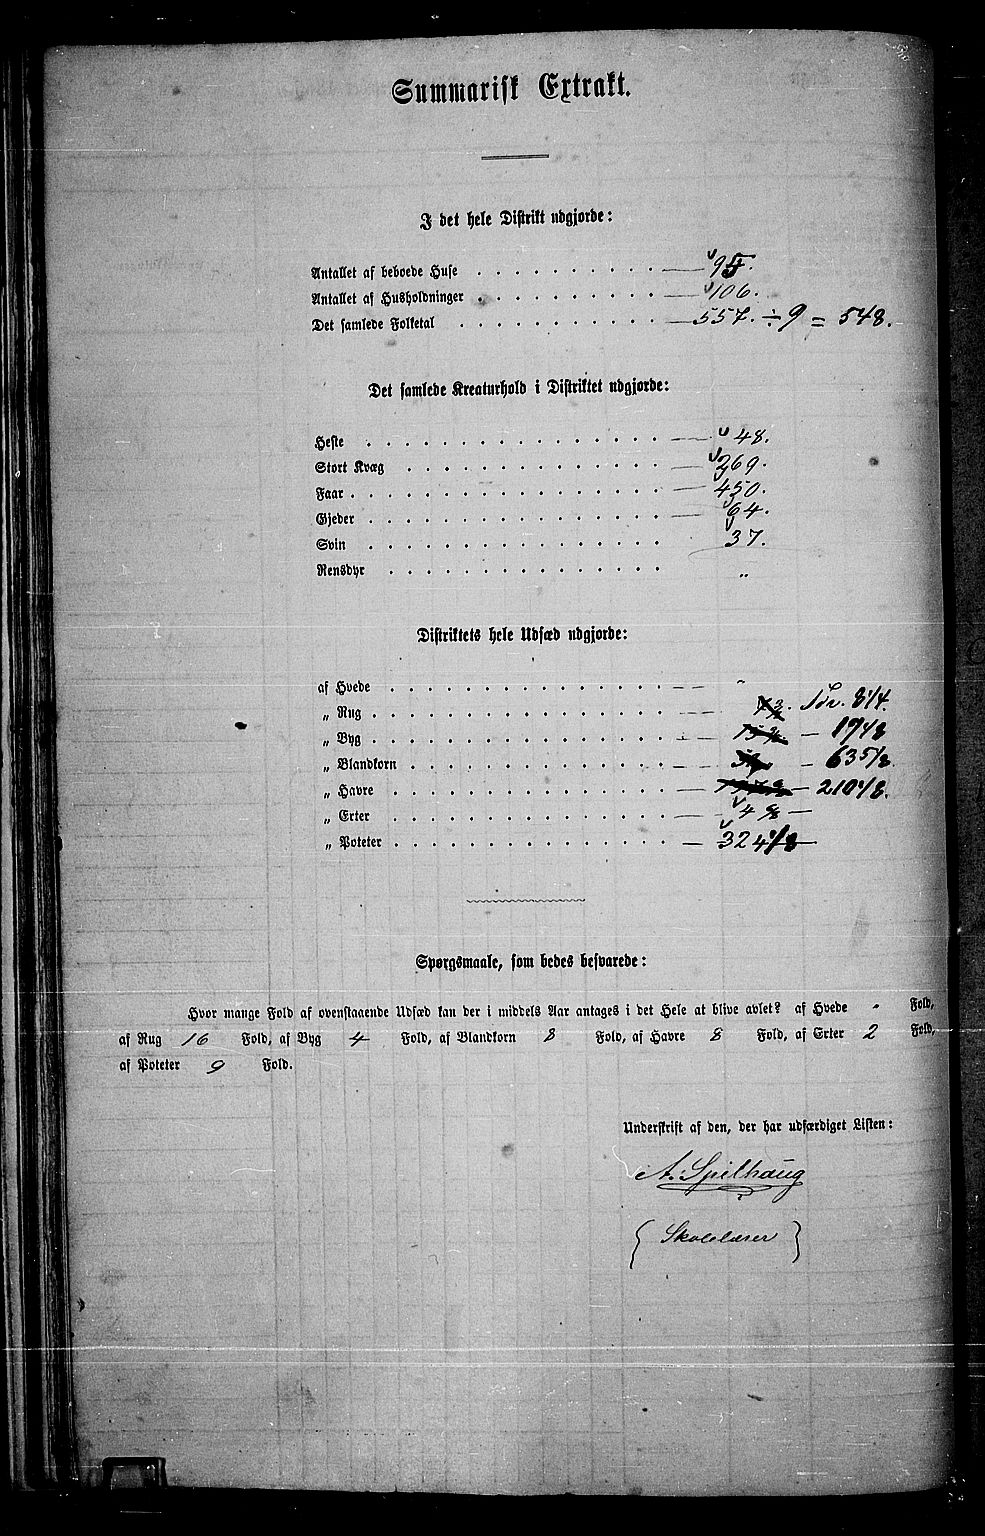 Summarisk Extrakt.
I det hele Distrikt udgjorde:
Antallet af beboede Huse 95.
Antallet af Husholdninger 106.
Det samlede Folketal 557. ÷ 9 = 548.
Det samlede Kreaturhold i Distriktet udgjorde:
Heste 48.
Stort Kvæg 269.
Faar 450.
Gjeder 64.
Svin 37.
Rensdyr „
Distriktets hele Udsæd udgjorde:
af Hvede „
„ Rug Tdr. 8 1/4.
„ Byg — 17 4/8
„ Blandkorn — 63 5/8.
„ Havre — 210 4/8.
„ Erter 4
„ Poteter 324 1/8
Spørgsmaale, som bedes besvarede:
Hvor mange Fold af ovenstaaende Udsæd kan der i middels Aar antages i det Hele at blive avlet? af Hvede - Fold,
af Rug 16 Fold, af Byg 4 Fold, af Blandkorn 8 Fold, af Havre 8 Fold, af Erter 2 Fold,
af Poteter 9 Fold.
Underskrift af den, der har udfærdiget Listen:
A. Spilhaug
{ Skolelærer }